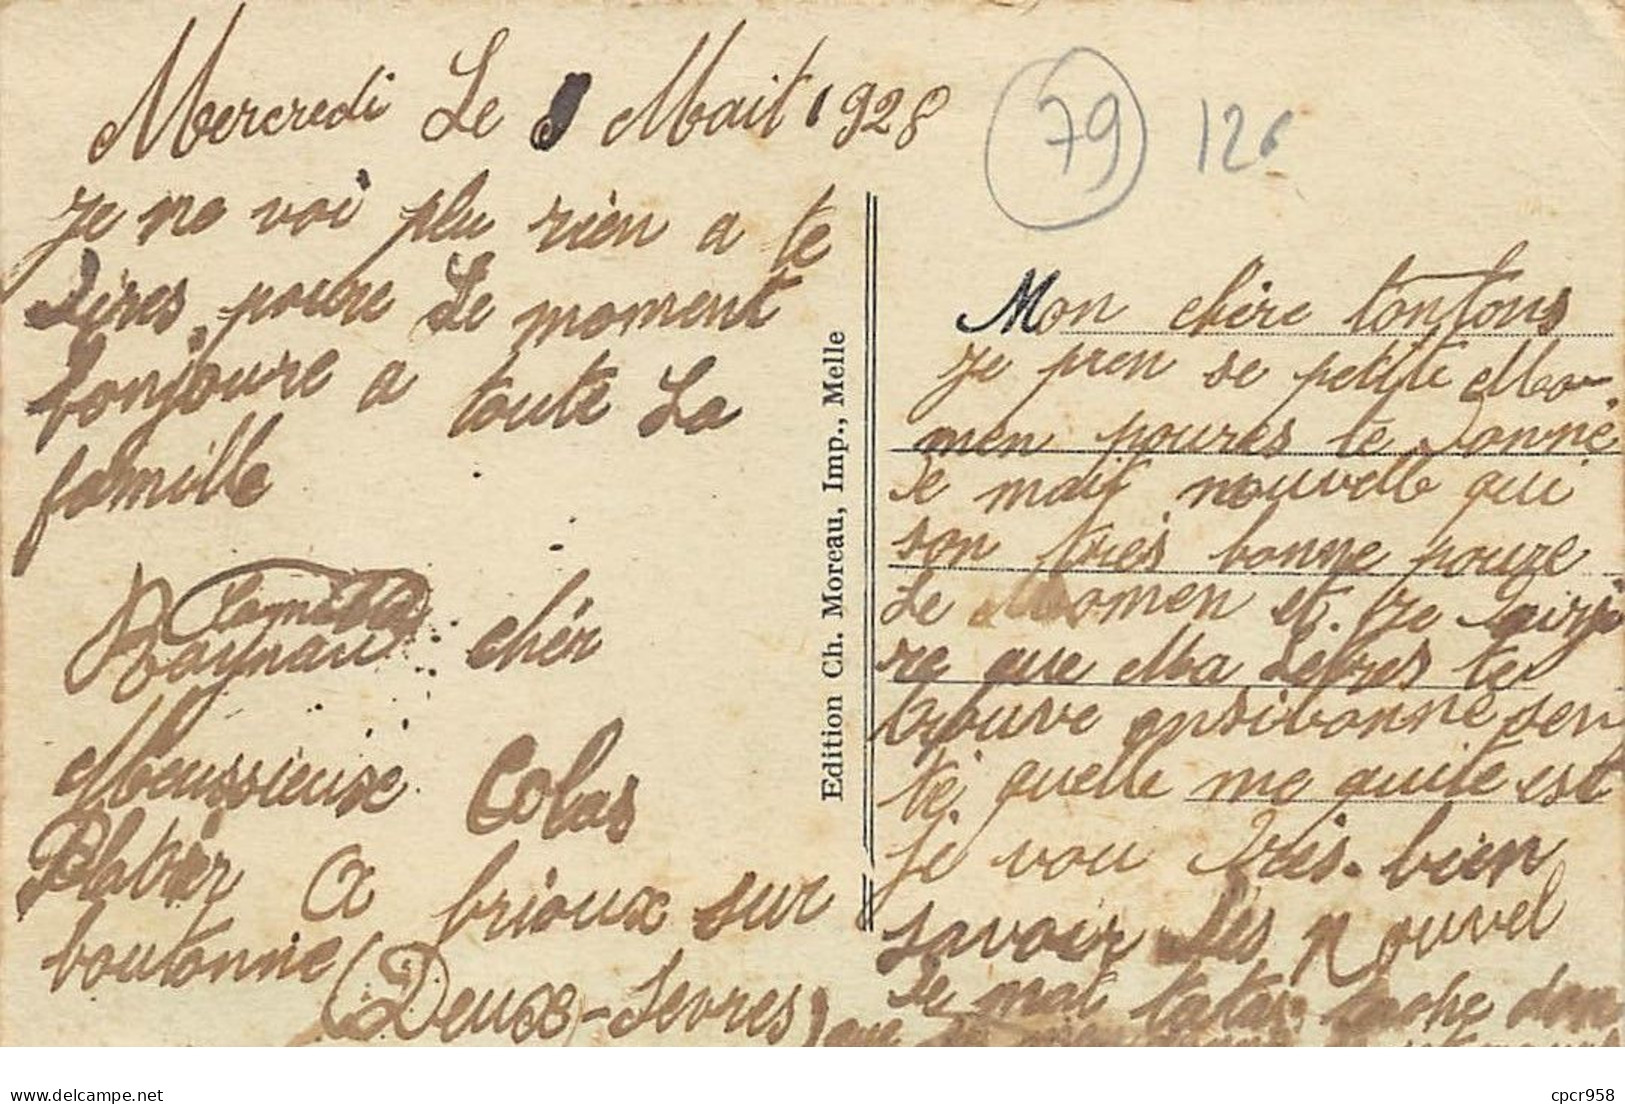 Mercredi Le 9 Mait 1928
je ne voi plu rien a te
dires poure Le moment
bonjoure a toute La
famille
Camille
Raynau chér
Meussieuse Colas
Platrier a brioux sur
boutonne
(Deux-Sevres)
Edition Ch. Moreau, Imp., Melle
79 126
Mon chère tontons
je pren se petite Mo-
men poures te donné
de mait nouvelle qui
son tres bonne poure
Le Momen et je
re que Ma Letres te
trouve bonne sen
té. quelle me quite est
je vou très bien
savoir des Nouvel
de mai tatas tache don
que
Delcampe.net
cpcr958